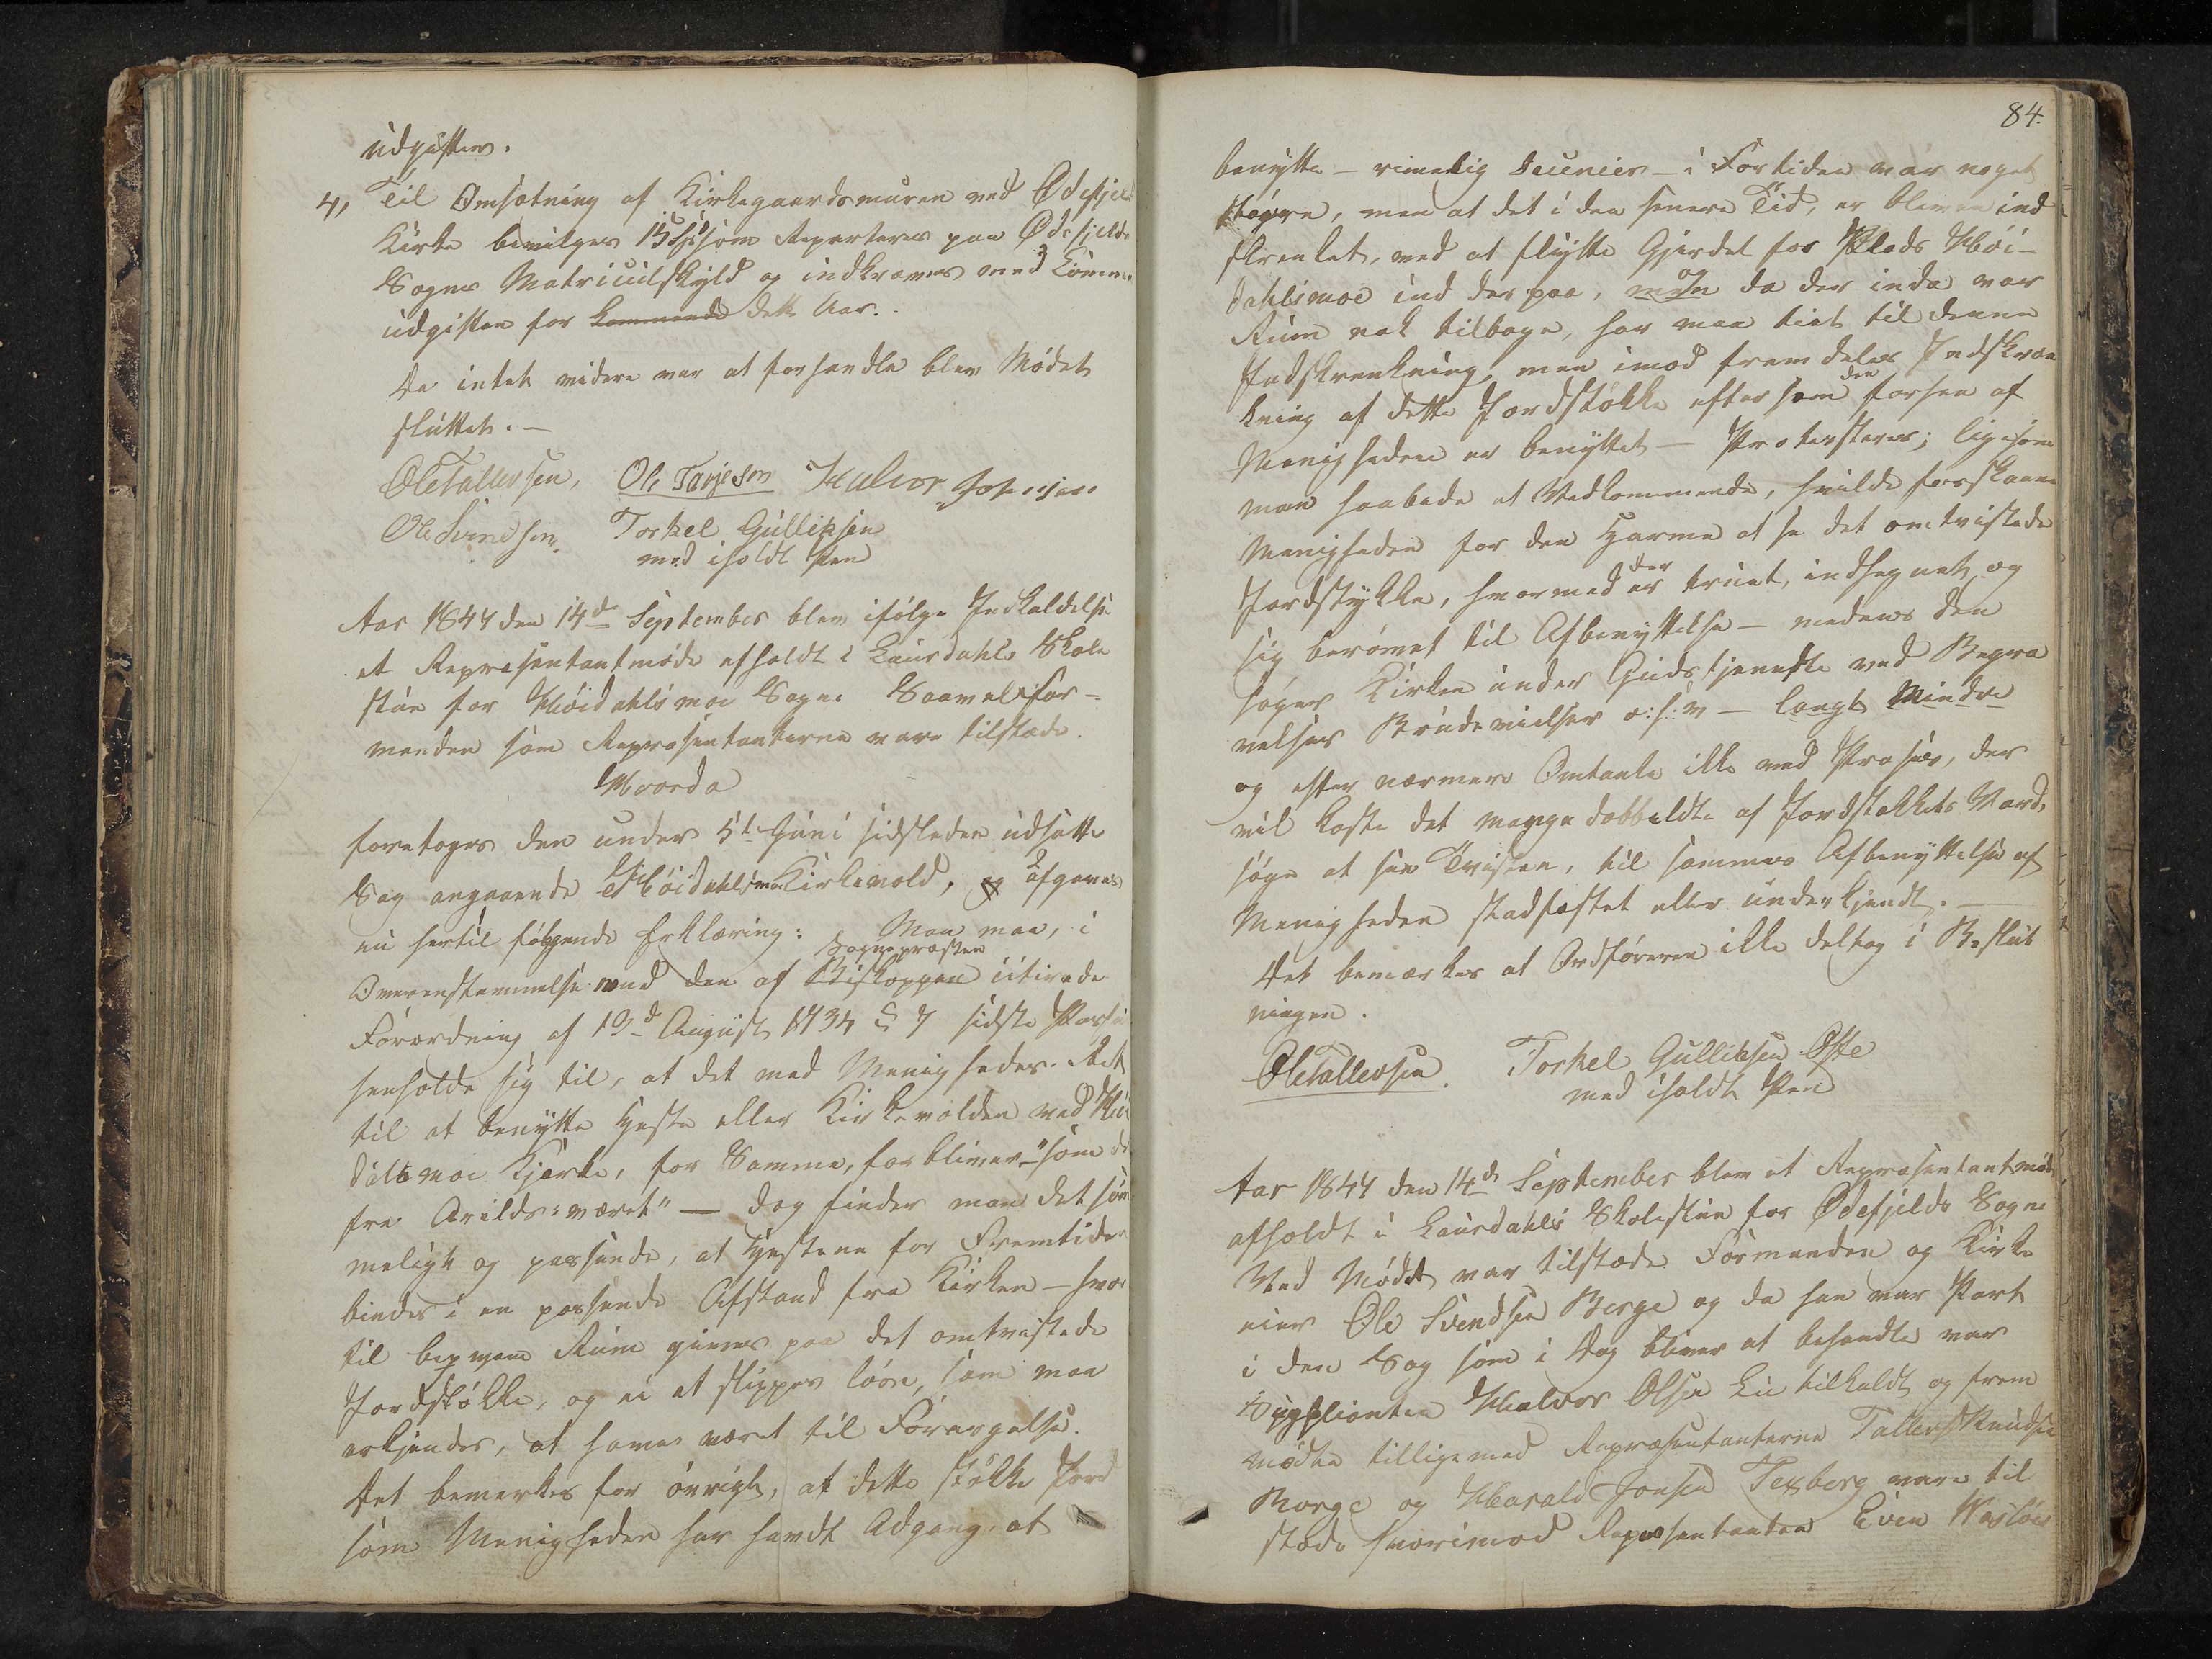 udgifter.
4, Til Omsætning af Kirkegaardsmuren ved Ødefjel
Kirke bevilges 15 Spd som Reparteres paa Ødefjelds
Sogns Matriculskyld og indkræves med Commu
udgiften for kommende dette Aar.
Da intet videre var at forhandle blev Mødet
sluttet. —
Ole Tallevsen, Ole Tarjesen Halvor Johnsen
Ole Svendsen. Torkel Gulliksen
med iholdt Pen
Aar 1844 den 14de September blev ifølge Indkaldelse
et Repræsentantmøde afholdt i Laurdahls Skole
stue for Høidahlsmoe Sogn. Saavel For-
manden som Repræsentanterne vare tilstæde.
Hvorda
foretoges den under 5te Juni sidstleden udsatte
Sag angaaende Høidahlsmoe Kirkevold, og afgaves
nu hertil følgende Erklæring: Man maa, i
Overenstemmelse med den af Biskoppen Sognepræsten citirede
Forordning af 19d August 1734 § 7 sidste Passu
henholde sig til, at det med Menigheders Ret
til at benytte Heste eller Kirkevolden ved Høi
dalsmoe Kjerke, for Samme, forbliver "som de
fra Arilds været" — dog finder man det søm
meligt og passende, at Hestene for Fremtiden
bindes i en passende Afstand fra Kirken — hvor
til beqvem Rum gives paa det omtvistede
Jordstøkke, og ei at slippes løse, som man
erkjender, at haver været til Forargelse.
Det bemerkes for øvrigt, at dette støkke Jord
som Menigheden har havdt Adgang at
84.
benytte — rimelig — i Fortiden var noget
større, men at det i den senere Tid, er bleven ind
skrenket, ved at flytte Gjerdet for Plads Høi-
dahlsmoe ind der paa, men da der endda var
Rum nok tilbage, har man tiet til denne
Indskrenkning, men imod fremdeles Indskren
kning af dette Jordstøkke efter som den forhen af
Menigheden er benyttet — Protesteres; ligesom
man haabede at Vedkommende, hvilde forskaane
Menigheden for den Harme at se det omtvistede
Jordstykke, hvormed der er truet, indhegnet og
sig berømet til Afbenyttelse — medens den
søger Kirken under Gudstjeneste ved Begra
velser Brudevielser o: s: v — langt Mindre
og efter nærmere Omtanke ikke ved Proses, der
vil koste det mange dobbeldte af Jordstøkkets Værd,
søge at see Tvisten, til sammes Afbenyttelse af
Menigheden stadfæstet eller underkjendt. —
Det bemærkes at Ordføreren ikke deltog i Beslut
ningen.
Ole Tallevsen. Torkel Gulliksen Ofte
med iholdt Pen
Aar 1844 den 14de September blev et Repræsentantmøde
afholdt i Laurdahls Skolestue for Ødefjelds Sogn
Ved Mødet var tilstæde Formanden og Kirke
eier Ole Svendsen Berge og da han var Part
i den Sag som i Dag bliver at behandle var
Supplianten Halvor Olsen Lie tilkaldt og frem
mødte tilligemed Repræsentanterne Tallev Knudsen
Berge og Harald Jonsen Texberg vare til
stæde hvorimod Repræsentanten Even